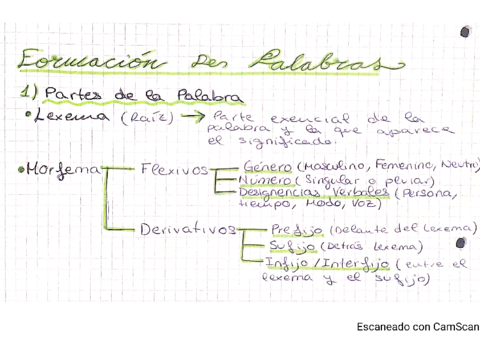 Formación Des Palabras
1) Partes de la Palabra
• Lexema (Raíz) → Parte exencial de la
palabra y la que aparece
el significado.
• Morfema Flexivos Género (Masculino, Femenino, Neutro)
Número (Singular o plural)
Designencias Verbales (Persona,
tiempo, Modo, Voz)
Derivativos Prefijo (Delante del Lexema)
Sufijo (Detrás Lexema)
Infijo / Interfijo (entre el
lexema y el sufijo)
Escaneado con CamScan